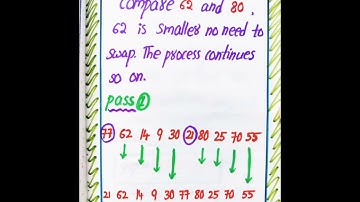 Compare 62 and 80.
62 is smaller no need to
swap. The process continues
so on.
pass 1
77 62 14 9 30 21 80 25 70 55
21 62 14 9 30 77 80 25 70 55